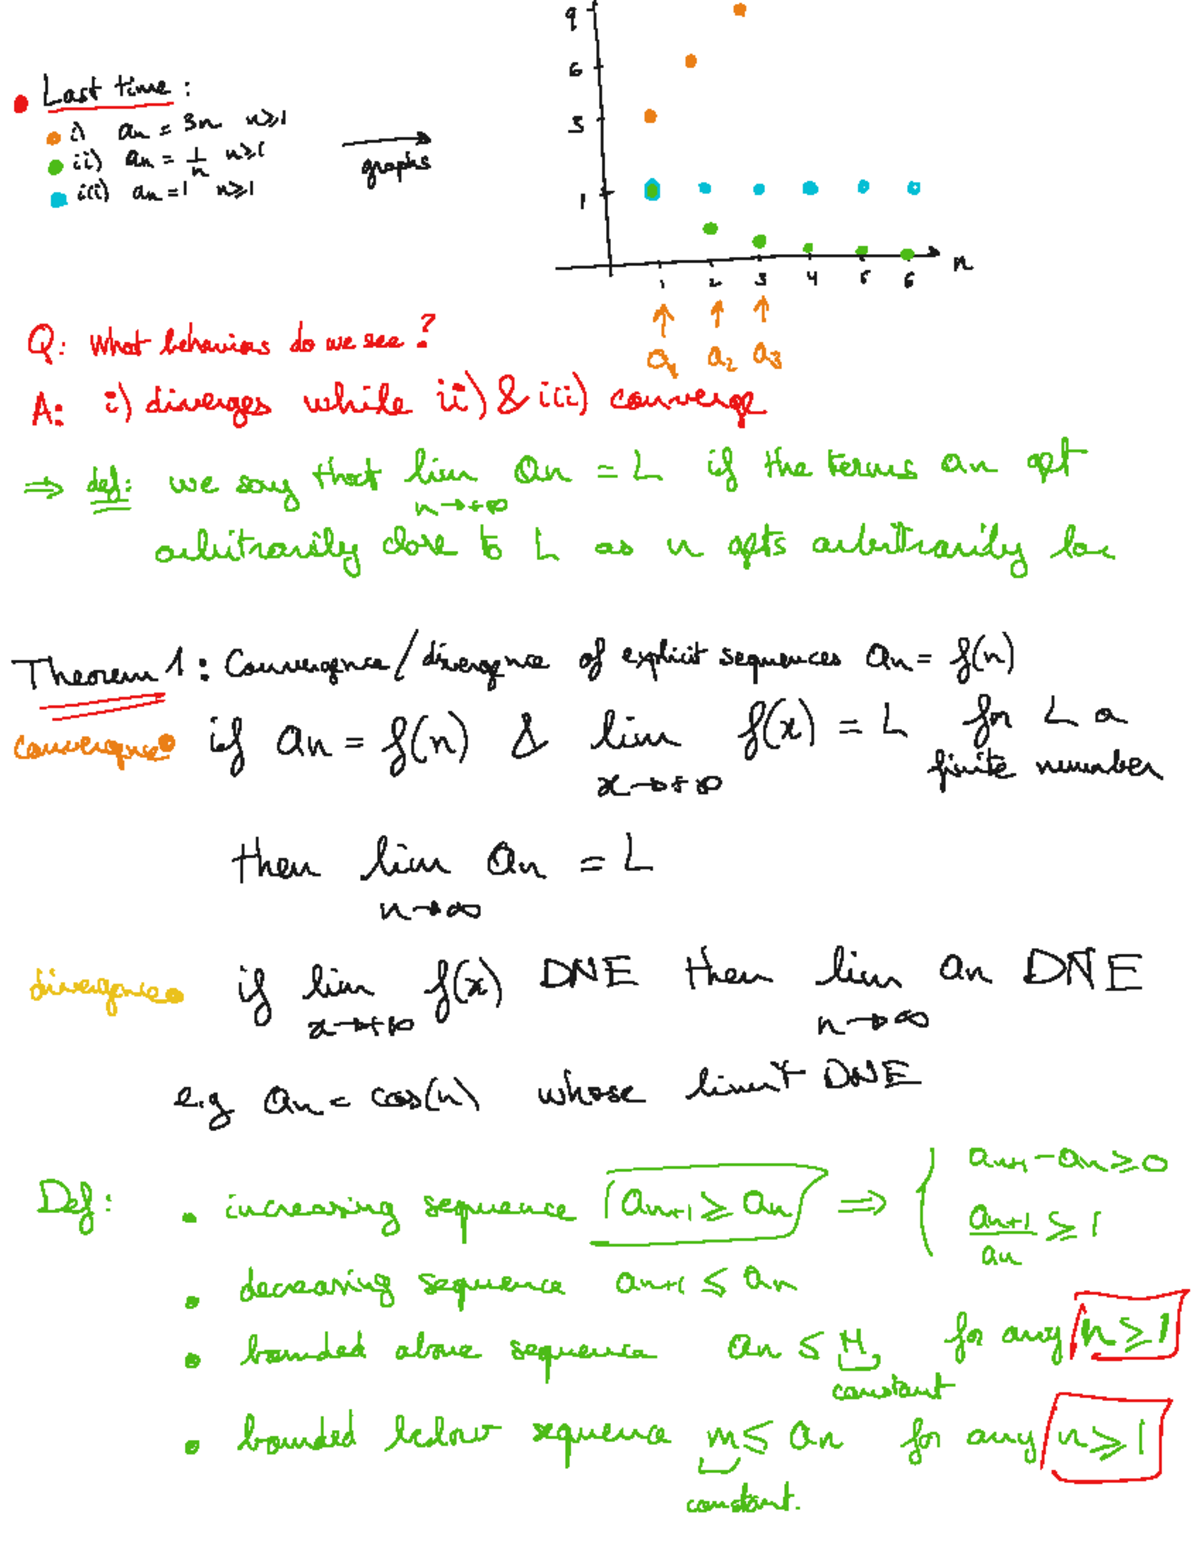 9
6
3
1
n
1 2 3 4 5 6
a₁ a₂ a₃
Last time:
i) an = 3n n≥1
ii) an = 1/n n≥1
iii) an = 1 n≥1
graphs
Q: What behaviors do we see?
A: i) diverges while ii) & iii) converge
⇒ def: we say that lim an = L if the terms an get
n→+∞
arbitrarily close to L as n gets arbitrarily
Theorem 1: Convergence/divergence of explicit sequences an = f(n)
convergence if an = f(n) & lim f(x) = L for L a
x→+∞ finite number
then lim an = L
n→∞
divergence if lim f(x) DNE then lim an DNE
x→+∞ n→∞
e.g an = cos(n) whose limit DNE
Def: • increasing sequence an+1 ≥ an ⇒ { an+1 - an ≥ 0
an+1/an ≥ 1
• decreasing sequence an+1 ≤ an
• bounded above sequence an ≤ M for any n ≥ 1
constant
• bounded below sequence m ≤ an for any n ≥ 1
constant.